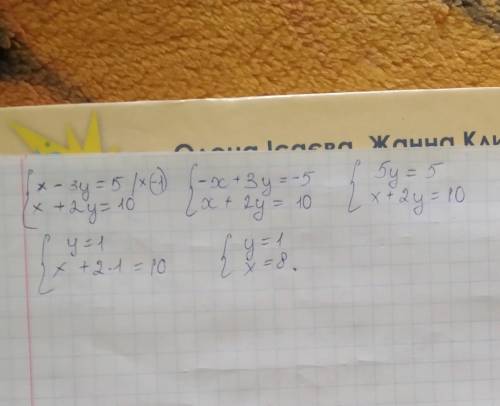 Олена Ісаєва, Жанна Кли
{ x - 3y = 5 / ×(-1)
x + 2y = 10
{ -x + 3y = -5
x + 2y = 10
{ 5y = 5
x + 2y = 10
{ y = 1
x + 2·1 = 10
{ y = 1
x = 8.